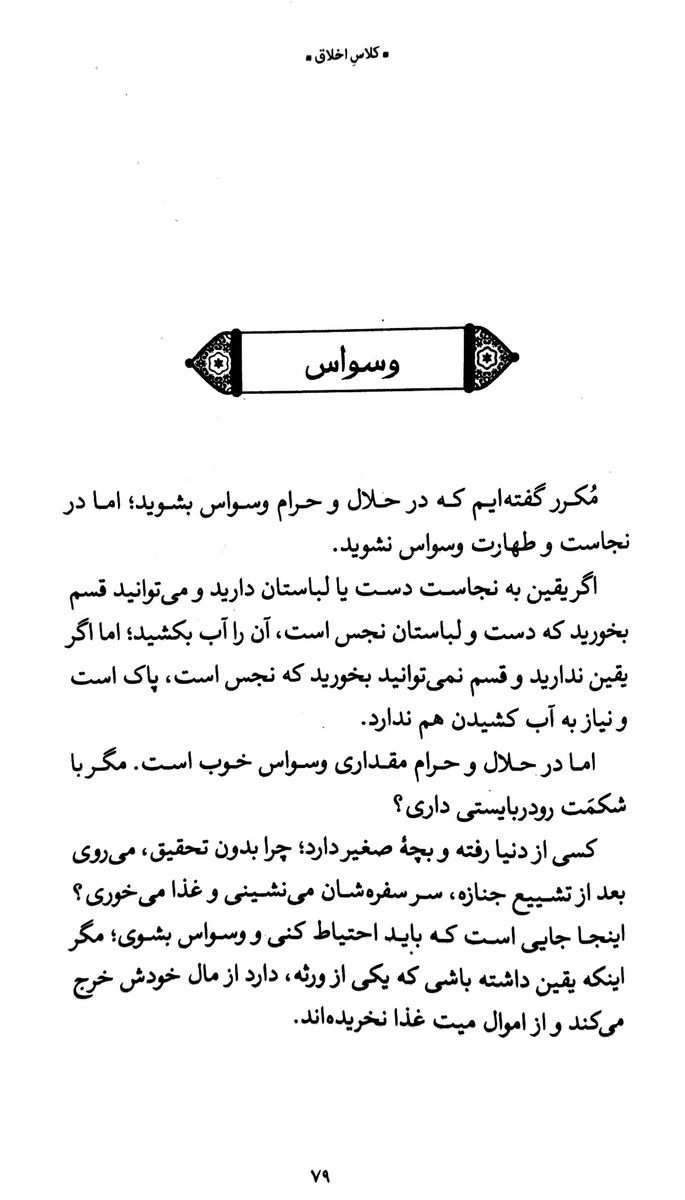 ▪ کلاسِ اخلاق ▪
وسواس
مُکرر گفته‌ایم که در حلال و حرام وسواس بشوید؛ اما در
نجاست و طهارت وسواس نشوید.
اگر یقین به نجاست دست یا لباستان دارید و می‌توانید قسم
بخورید که دست و لباستان نجس است، آن را آب بکشید؛ اما اگر
یقین ندارید و قسم نمی‌توانید بخورید که نجس است، پاک است
و نیاز به آب کشیدن هم ندارد.
اما در حلال و حرام مقداری وسواس خوب است. مگر با
شکمَت رودربایستی داری؟
کسی از دنیا رفته و بچهٔ صغیر دارد؛ چرا بدون تحقیق، می‌روی
بعد از تشییع جنازه، سر سفره‌شان می‌نشینی و غذا می‌خوری؟
اینجا جایی است که باید احتیاط کنی و وسواس بشوی؛ مگر
اینکه یقین داشته باشی که یکی از ورثه، دارد از مال خودش خرج
می‌کند و از اموال میت غذا نخریده‌اند.
۷۹